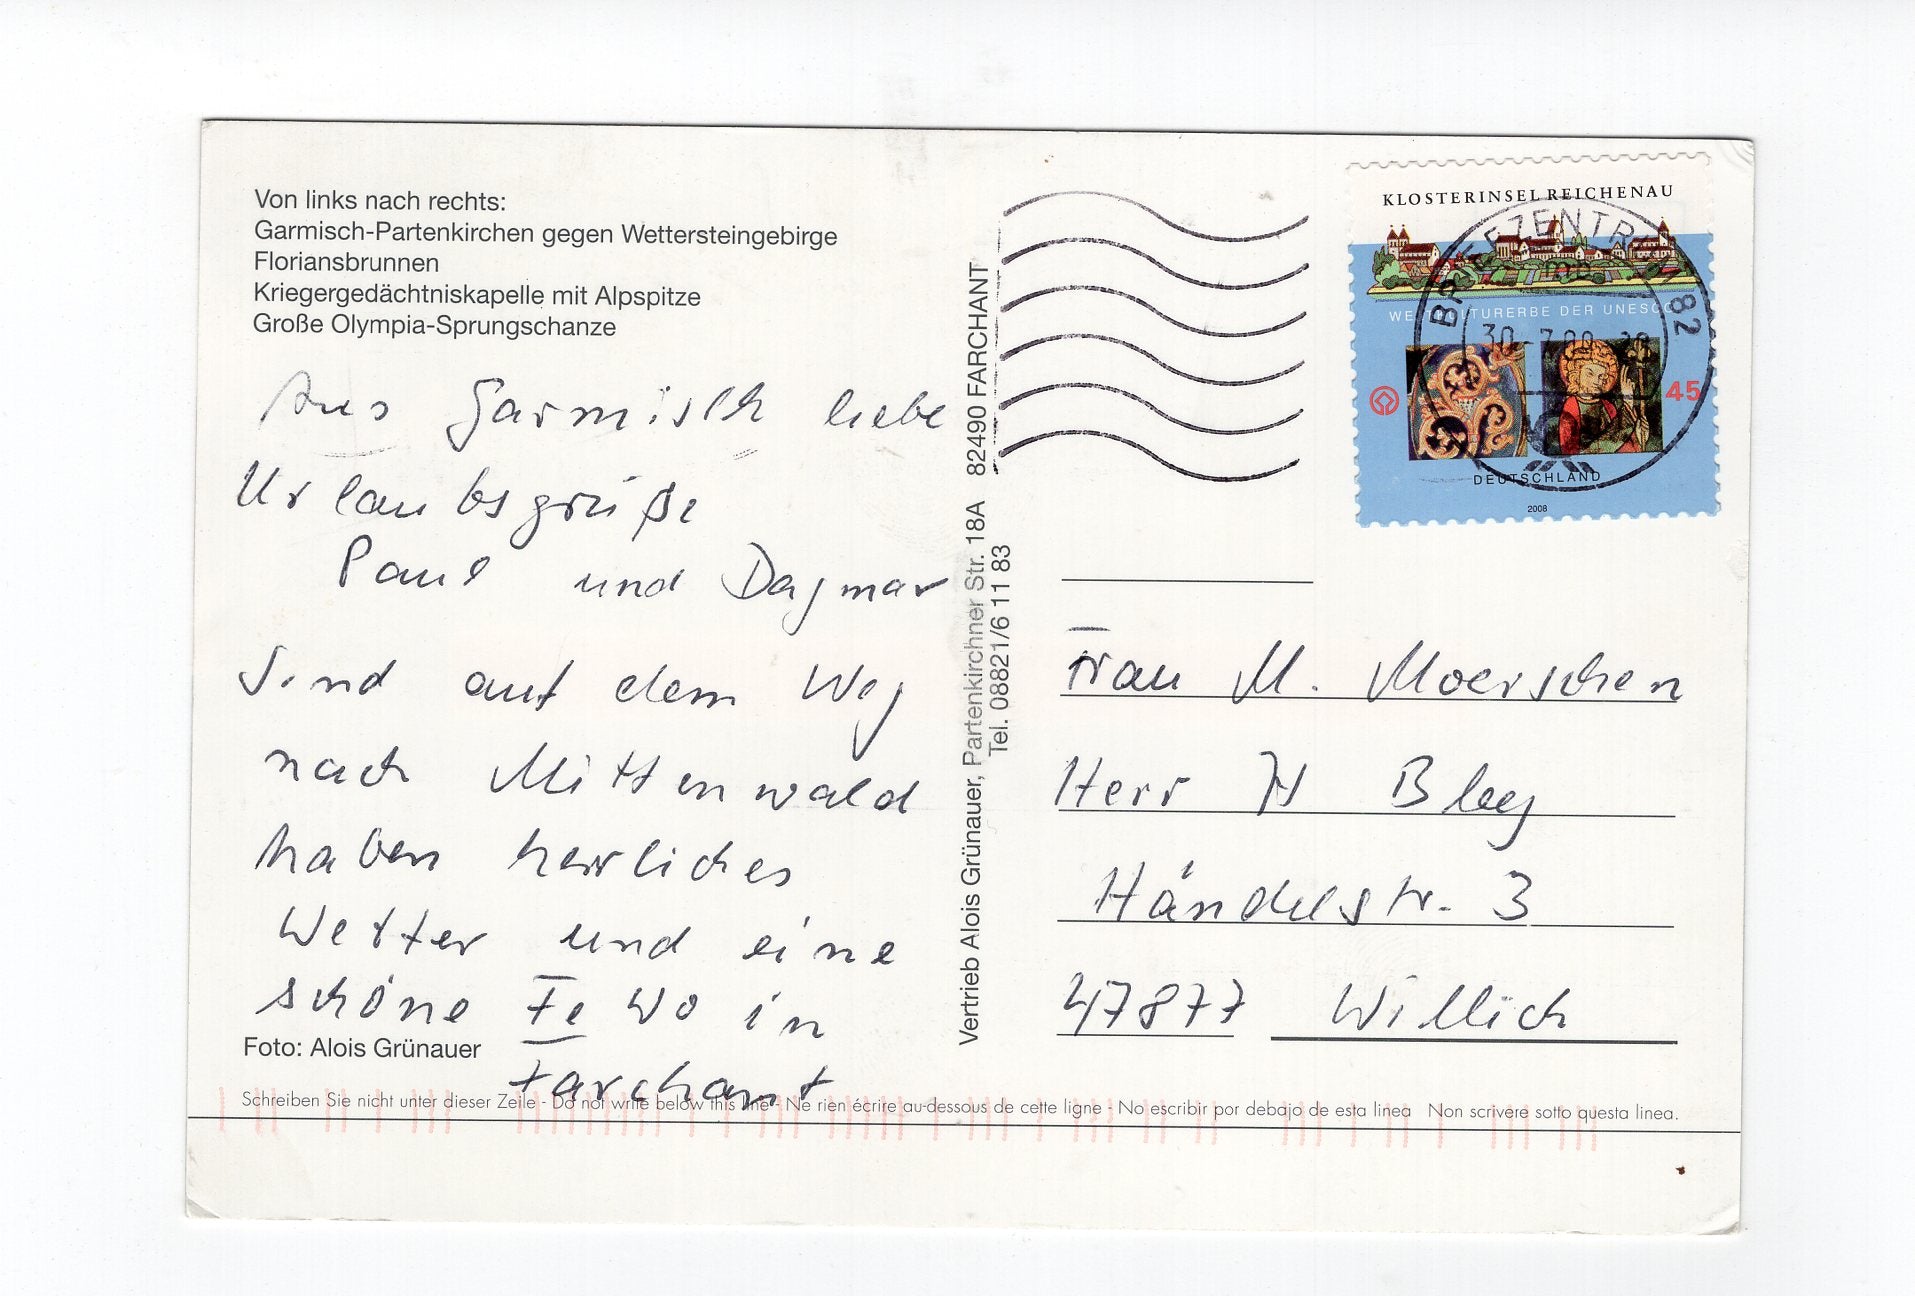 Von links nach rechts:
Garmisch-Partenkirchen gegen Wettersteingebirge
Floriansbrunnen
Kriegergedächtniskapelle mit Alpspitze
Große Olympia-Sprungschanze
Aus Garmisch liebe
Urlaubsgrüße
Paul und Dagmar
Sind auf dem Weg
nach Mittenwald
haben herrliches
Wetter und eine
schöne FeWo in
Farchant
Foto: Alois Grünauer
Schreiben Sie nicht unter dieser Zeile - Do not write below this line - Ne rien écrire au-dessous de cette ligne - No escribir por debajo de esta linea Non scrivere sotto questa linea.
Vertrieb Alois Grünauer, Partenkirchner Str. 18A 82490 FARCHANT
Tel. 08821/6 11 83
KLOSTERINSEL REICHENAU
WELTKULTURERBE DER UNESCO
45
DEUTSCHLAND
2008
BRIEFZENTRUM 82
Frau M. Moerschen
Herr H Bley
Händelstr. 3
47877 Willich